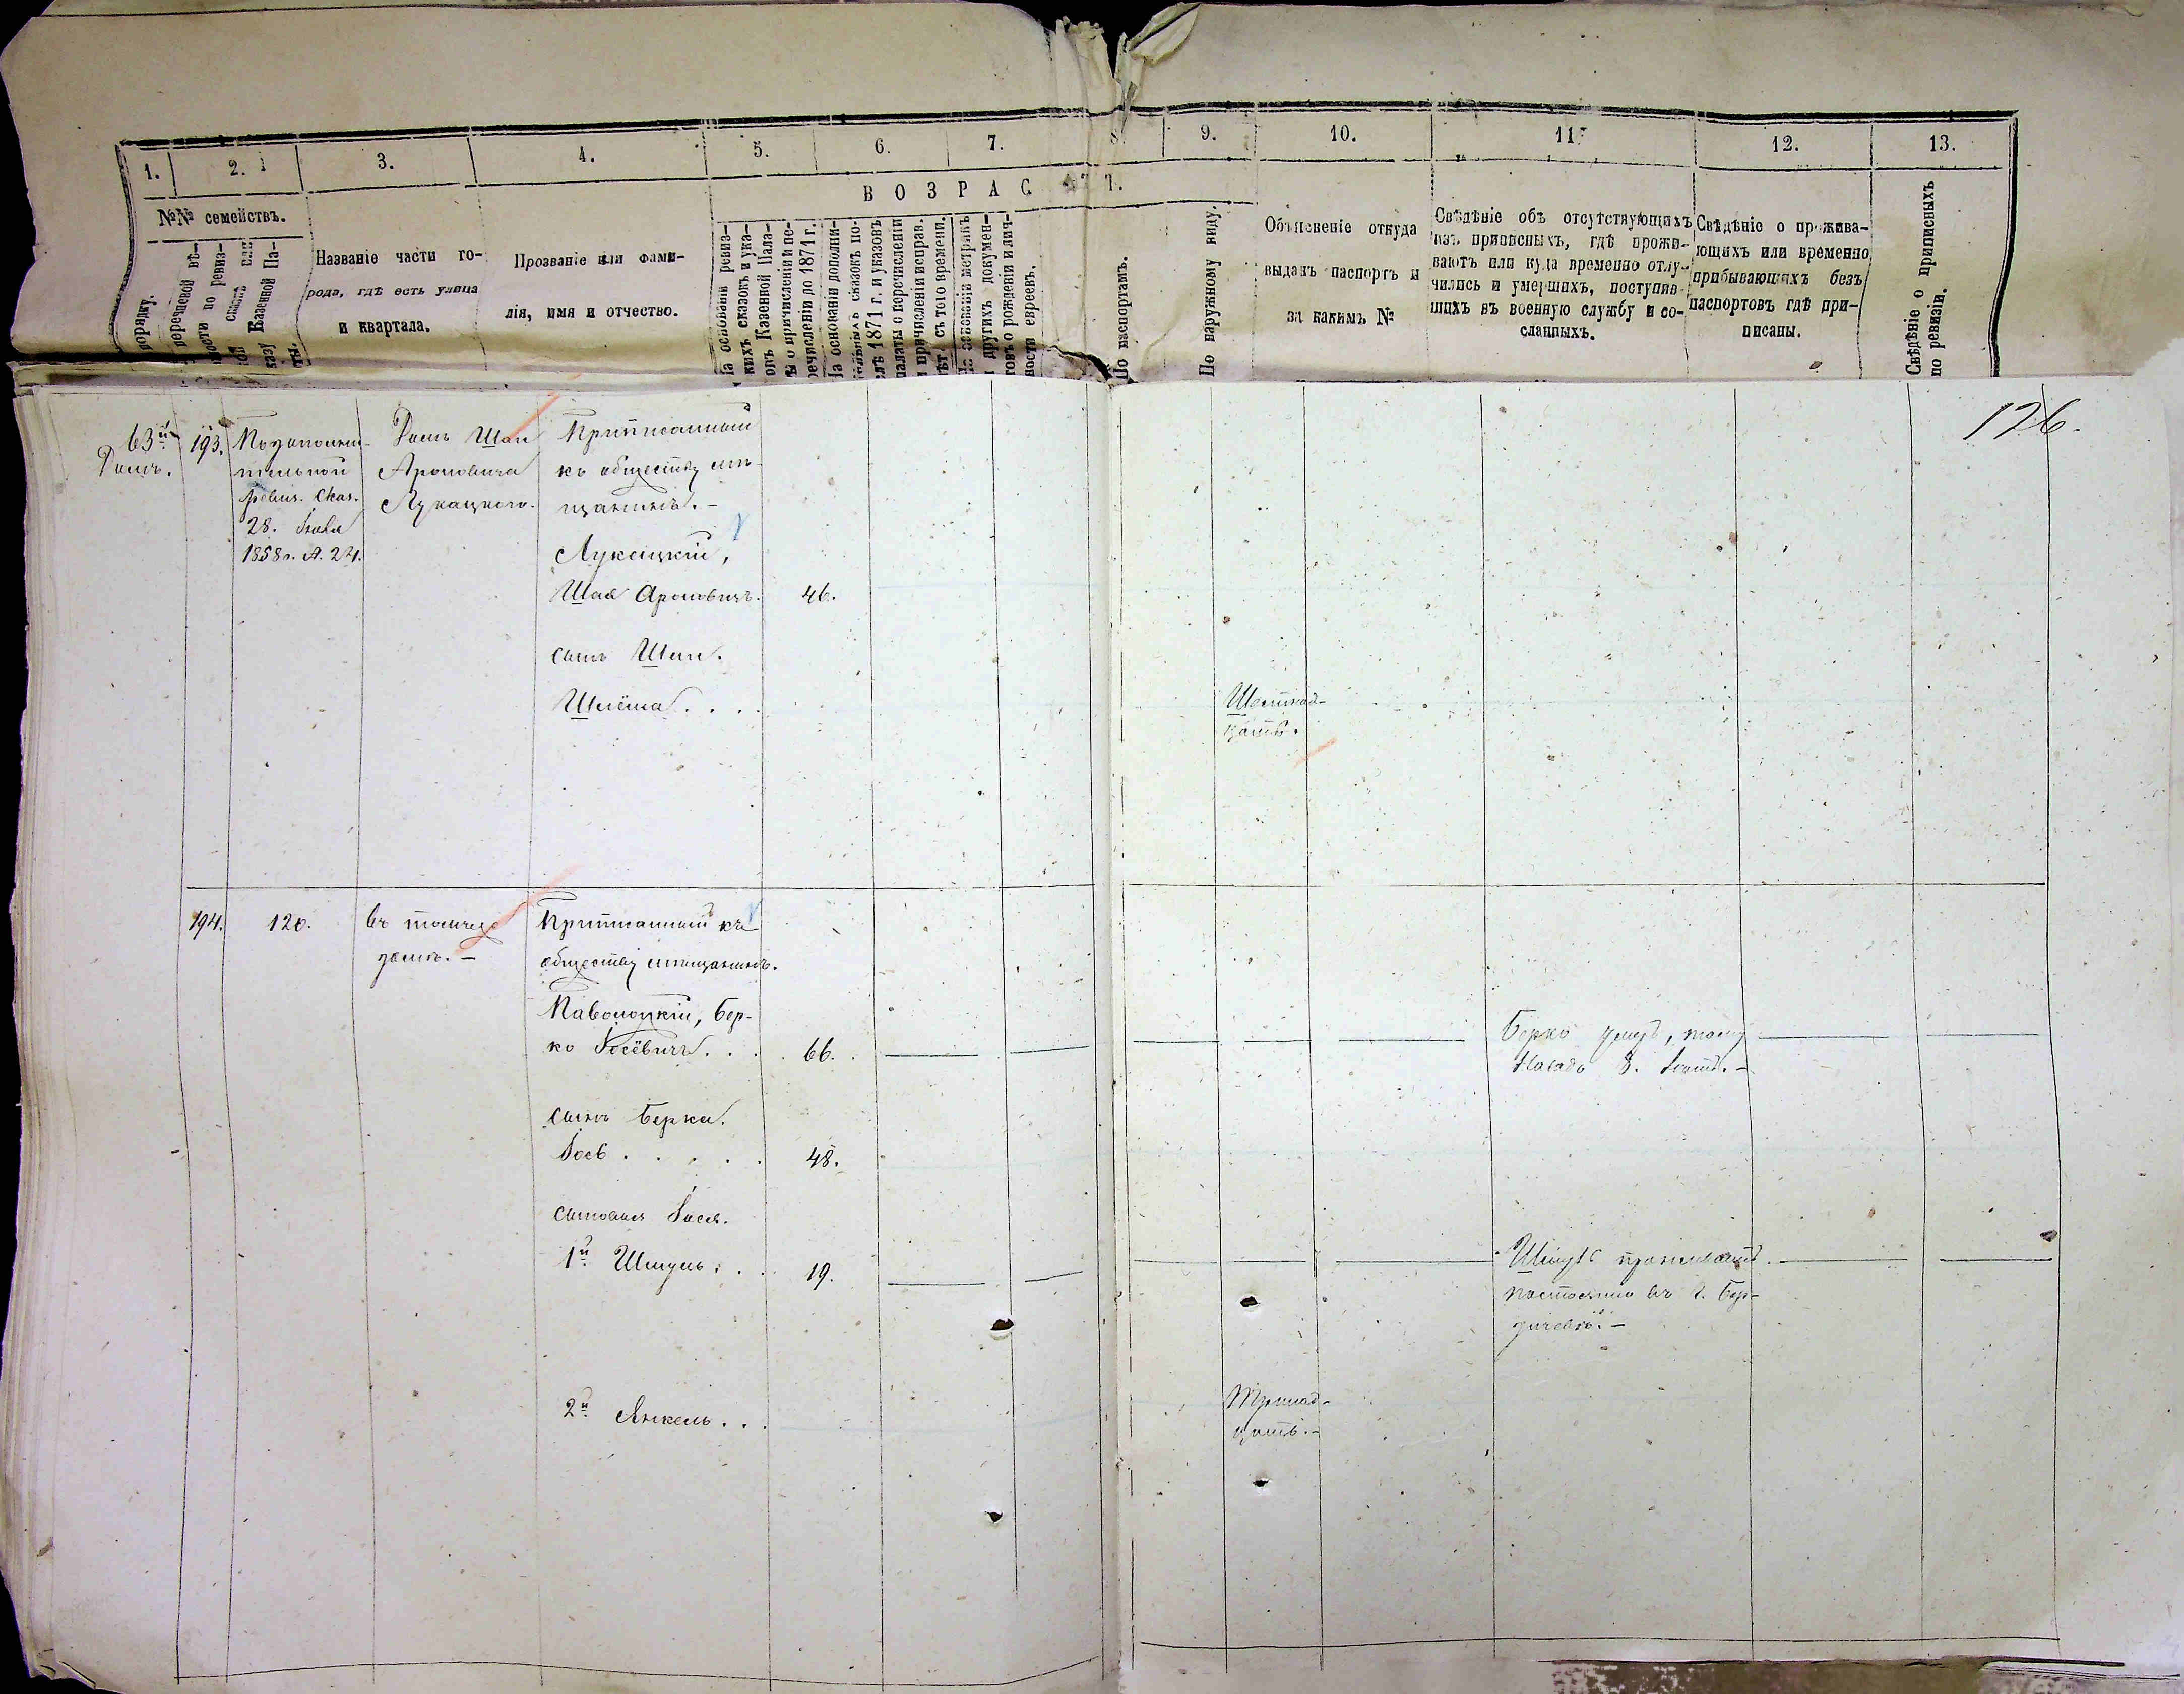 1.
2.
3.
4.
5.
6.
7.
8.
9.
10.
11.
12.
13.
№№ семействъ.
ВОЗРАСТЪ.
порядку.
перечневой вѣ-
ности по ревиз-
казу Казенной Па-
ты.
Названіе части го-
рода, гдѣ есть улица
и квартала.
Прозваніе или фами-
лія, имя и отчество.
На основаніи ревиз-
кихъ сказокъ и ука-
зовъ Казенной Пала-
ты о причисленіи и пе-
речисленіи до 1871 г.
На основаніи дополни-
тельныхъ сказокъ по-
слѣ 1871 г. и указовъ
палаты о перечисленіи
и причисленіи исправ.
лѣт. съ того времени.
На основаніи метрикъ
и другихъ докумен-
товъ о рожденіи и лич-
ности евреевъ.
По паспортамъ.
По наружному виду.
Объясненіе откуда
выданъ паспортъ и
за какимъ №
Свѣдѣніе объ отсутствующихъ
изъ приписныхъ, гдѣ прожи-
ваютъ или куда временно отлу-
чились и умершихъ, поступив-
шихъ въ военную службу и со-
сланныхъ.
Свѣдѣніе о прожива-
ющихъ или временно
прибывающихъ безъ
паспортовъ гдѣ при-
писаны.
Свѣдѣніе о приписныхъ
по ревизіи.
126.
63й
Домъ.
193.
По дополни-
тельной
ревиз. Сказ.
28. Іюля
1858 г. №. 24.
Домъ Шаи
Ароновича
Лукацкого.
Приписанный
къ обществу мѣ-
щанинъ.-
Лукацкій,
Шая Ароновичъ. 46.
сынъ Шаи.
Шлёма . . . .
Шестнад-
цать.
194.
120.
въ томъ же
домѣ.-
Приписанный къ
обществу мѣщанинъ.
Паволоцкій, Бер-
ко Іосёвичъ . . . 66.
Берко умеръ, тому
назадъ 8. лѣтъ.-
сынъ Берка.
Іось . . . . . 48.
сыновья Іося.
1й Шмуль . . . 19.
Шмуль проживаетъ
постоянно въ г. Бер-
дичевѣ.-
2й Янкель . . .
Тринад-
цать.-